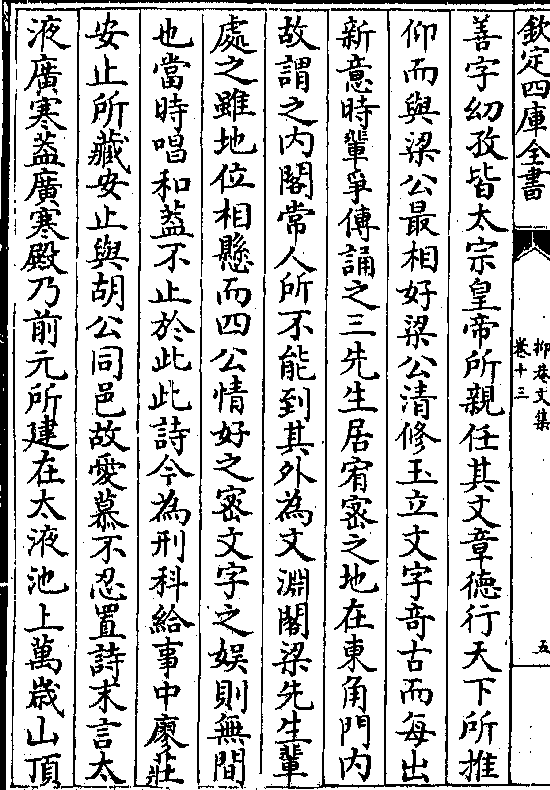 欽定四庫全書
抑菴文集
卷十三
五
善字幼孜皆太宗皇帝所親任其文章徳行天下所推
仰而與梁公最相好梁公清修玉立文字竒古而每出
新意時輩爭傳誦之三先生居宥宻之地在東角門内
故謂之内閣常人所不能到其外為文淵閣梁先生輩
處之雖地位相懸而四公情好之宻文字之娱則無間
也當時唱和葢不止於此此詩今為刑科給事中廖莊
安止所藏安止與胡公同邑故愛慕不忍置詩末言太
液廣寒葢廣寒殿乃前元所建在太液池上萬歳山頂